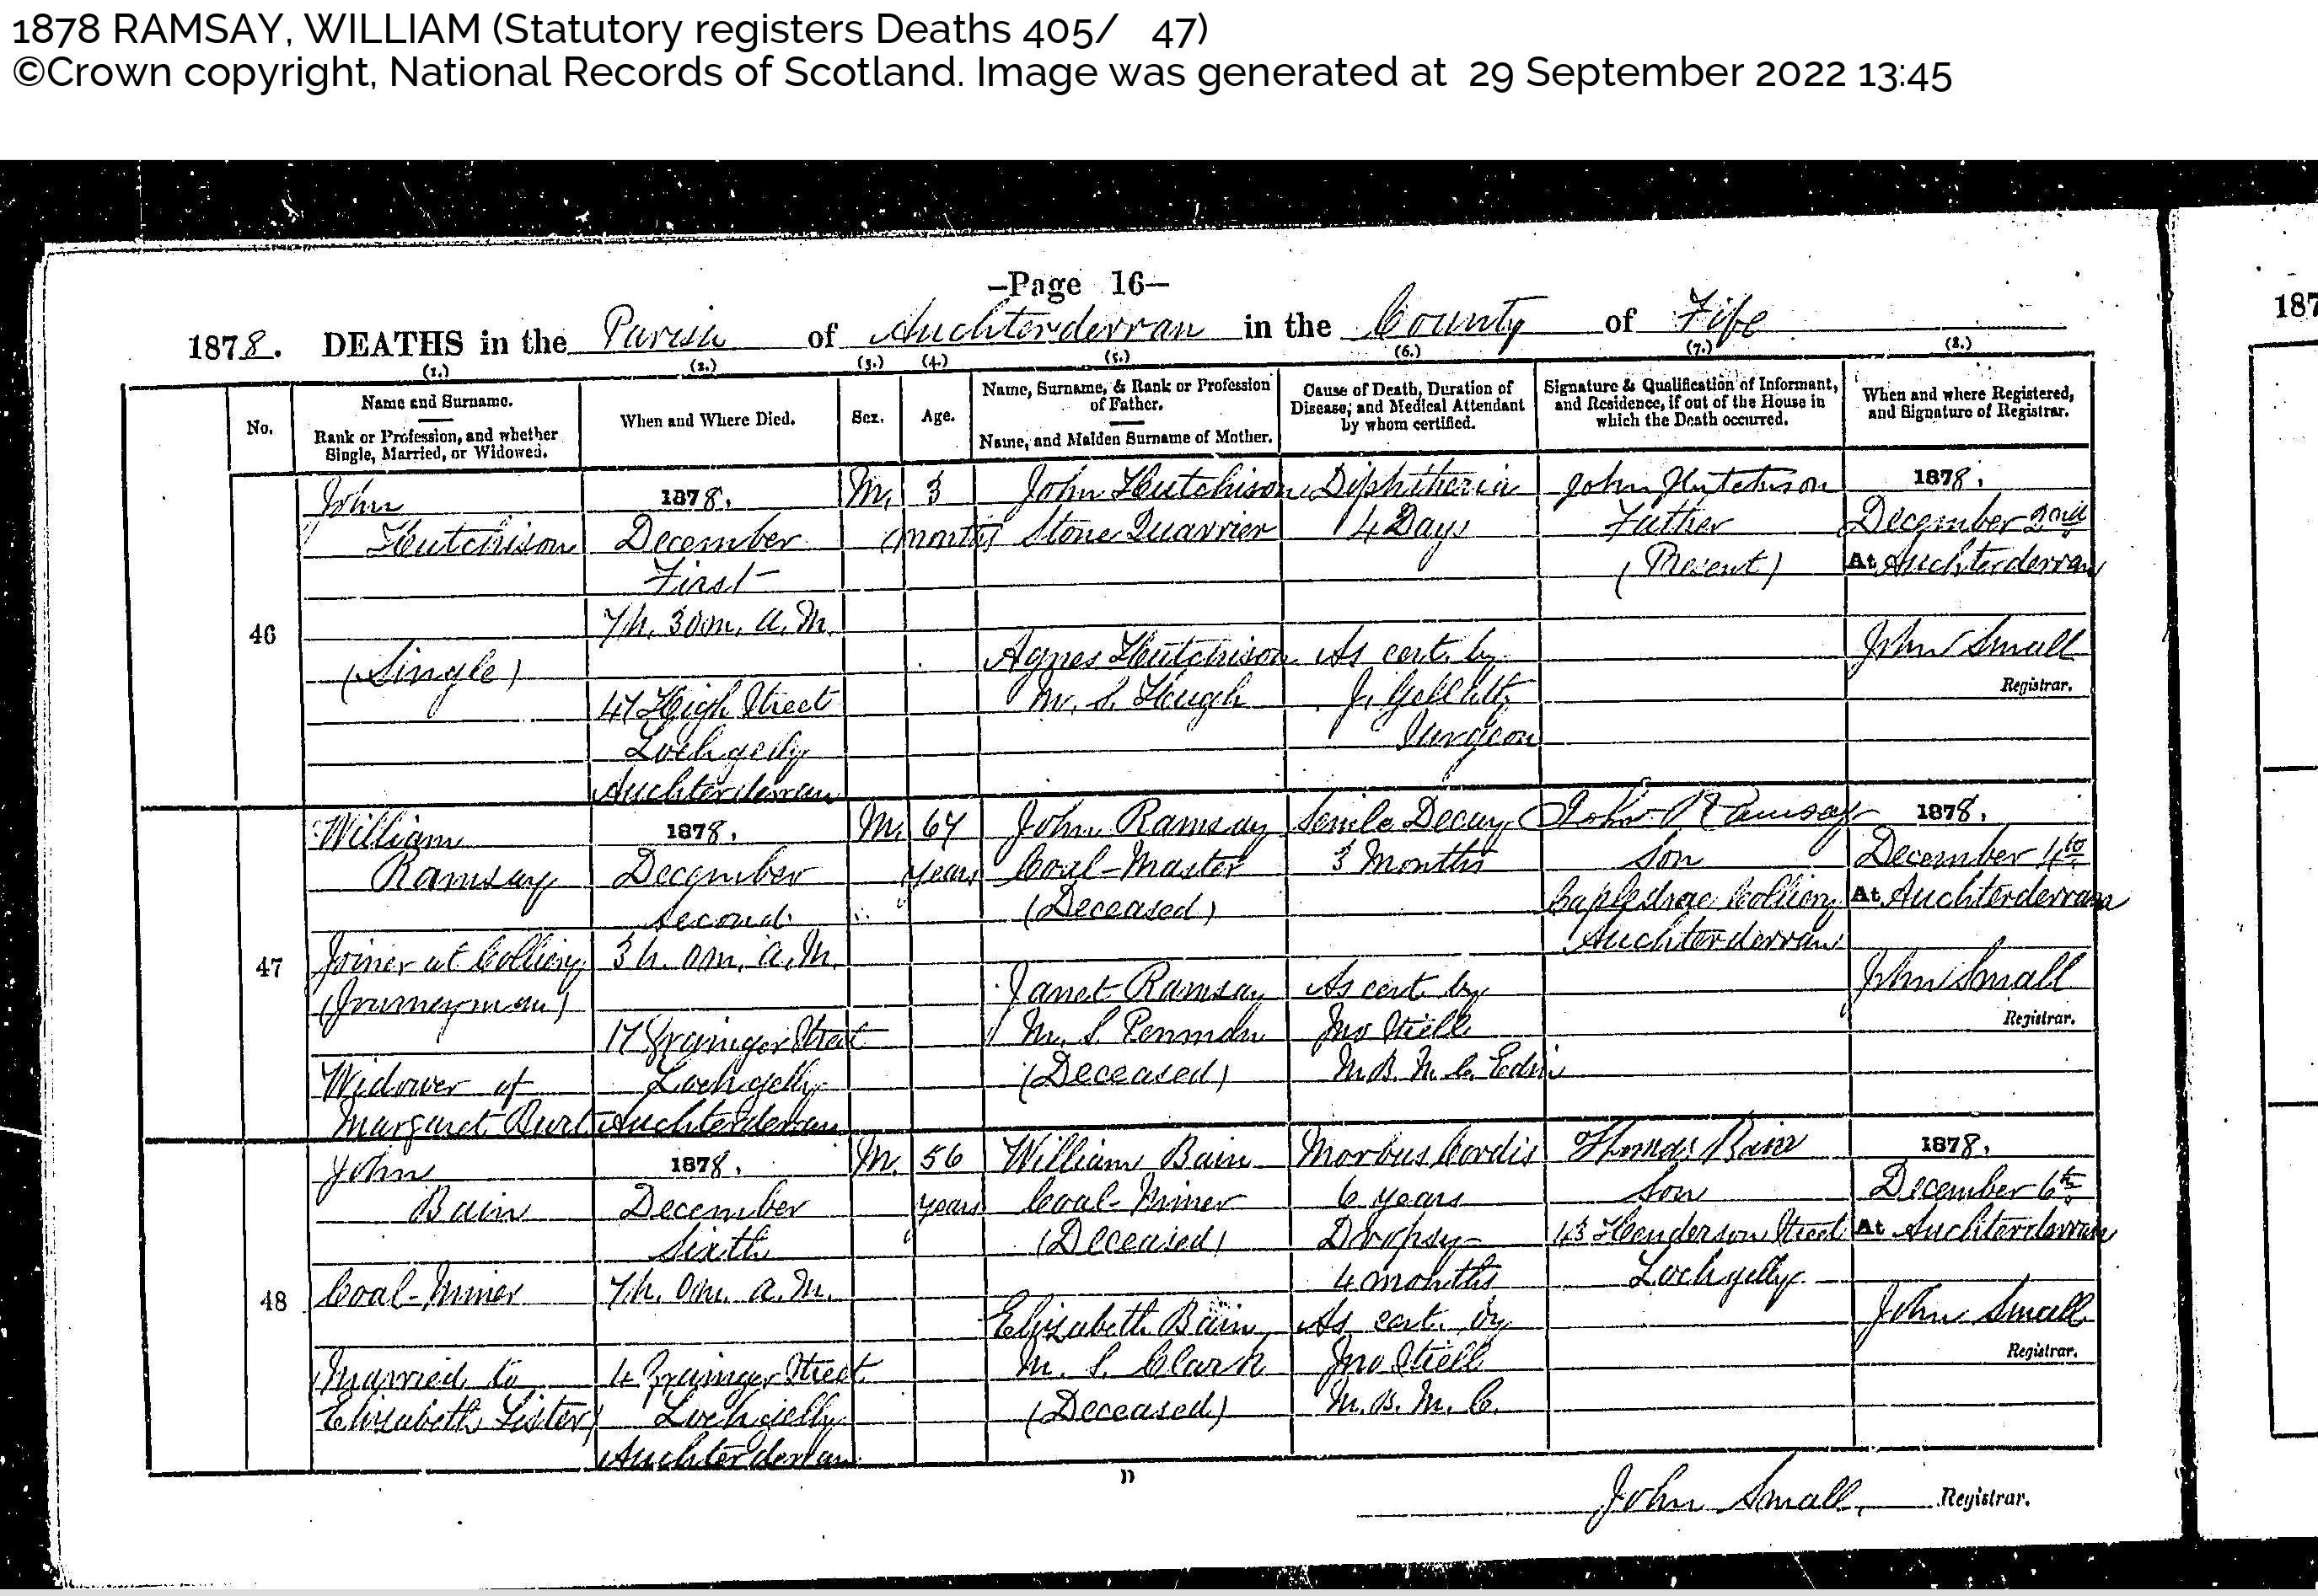 1878 RAMSAY, WILLIAM (Statutory registers Deaths 405/ 47)
©Crown copyright, National Records of Scotland. Image was generated at 29 September 2022 13:45
—Page 16—
1878. DEATHS in the Parish of Auchterderran in the County of Fife
187
(1.) (2.) (3.) (4.) (5.) (6.) (7.) (8.)
No.
Name and Surname.
Rank or Profession, and whether
Single, Married, or Widowed.
When and Where Died.
Sex.
Age.
Name, Surname, & Rank or Profession
of Father.
Name, and Maiden Surname of Mother.
Cause of Death, Duration of
Disease, and Medical Attendant
by whom certified.
Signature & Qualification of Informant,
and Residence, if out of the House in
which the Death occurred.
When and where Registered,
and Signature of Registrar.
46
John
Hutchison
(Single)
1878.
December
First
7h. 30m. A.M.
47 High Street
Lochgelly
Auchterderran
M.
3
months
John Hutchison
Stone Quarrier
Agnes Hutchison
M. S. Hugh
Diphtheria
4 Days
As cert. by
J. Gellatly
Surgeon
John Hutchison
Father
(Present)
1878.
December 2nd
At Auchterderran
John Small
Registrar.
47
William
Ramsay
Joiner at Colliery
(Journeyman)
Widower of
Margaret Durt
1878.
December
Second
3h. 0m. A.M.
17 Grainger Street
Lochgelly
Auchterderran
M.
67
years
John Ramsay
Coal-Master
(Deceased)
Janet Ramsay
M. S. Penman
(Deceased)
Senile Decay
3 Months
As cert. by
Jno Stiell
M.B. M.C. Edin
John Ramsay
Son
Capledrae Colliery
Auchterderran
1878.
December 4th
At Auchterderran
John Small
Registrar.
48
John
Bain
Coal-Miner
(Married to
Elizabeth Lister)
1878.
December
Sixth
7h. 0m. A.M.
4 Grainger Street
Lochgelly
Auchterderran
M.
56
years
William Bain
Coal-Miner
(Deceased)
Elizabeth Bain
M. S. Clark
(Deceased)
Morbus Cordis
6 years
Dropsy
4 months
As cert. by
Jno Stiell
M.B. M.C.
Thomas Bain
Son
43 Henderson Street
Lochgelly
1878.
December 6th
At Auchterderran
John Small
Registrar.
D
John Small, Registrar.